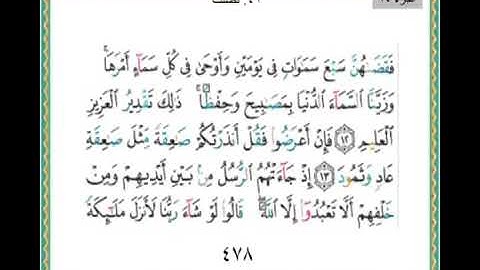 فَقَضَىٰهُنَّ سَبْعَ سَمَٰوَاتٍ فِى يَوْمَيْنِ وَأَوْحَىٰ فِى كُلِّ سَمَآءٍ أَمْرَهَا ۚ
وَزَيَّنَّا السَّمَآءَ الدُّنْيَا بِمَصَٰبِيحَ وَحِفْظًا ۚ ذَٰلِكَ تَقْدِيرُ الْعَزِيزِ
الْعَلِيمِ ١٢ فَإِنْ أَعْرَضُوا۟ فَقُلْ أَنذَرْتُكُمْ صَٰعِقَةً مِّثْلَ صَٰعِقَةِ
عَادٍ وَثَمُودَ ١٣ إِذْ جَآءَتْهُمُ الرُّسُلُ مِنۢ بَيْنِ أَيْدِيهِمْ وَمِنْ
خَلْفِهِمْ أَلَّا تَعْبُدُوٓا۟ إِلَّا اللَّهَ ۖ قَالُوا۟ لَوْ شَآءَ رَبُّنَا لَأَنزَلَ مَلَٰٓئِكَةً
٤٧٨